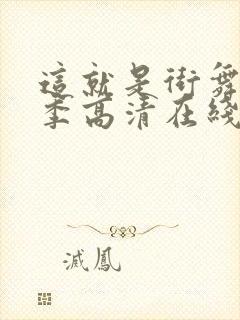 這就是街舞
季高清在綫
滅鳳